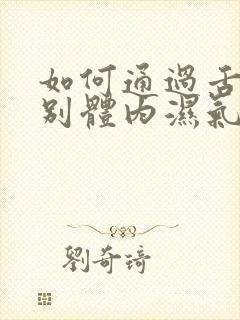 如何通過舌
別體內濕氣
劉奇琦